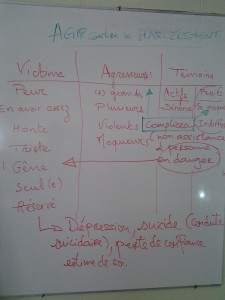 AGIR contre le HARCÈLEMENT
Victime Agresseurs Témoins
Peur les grands Actifs Passifs
En avoir assez Plusieurs
Honte Violents Complices
Triste Moqueurs non assistance
Gêne à personne
Seul(e) en danger
Réservé
Dépression, suicide (conduite
suicidaire), perte de confiance
estime de soi